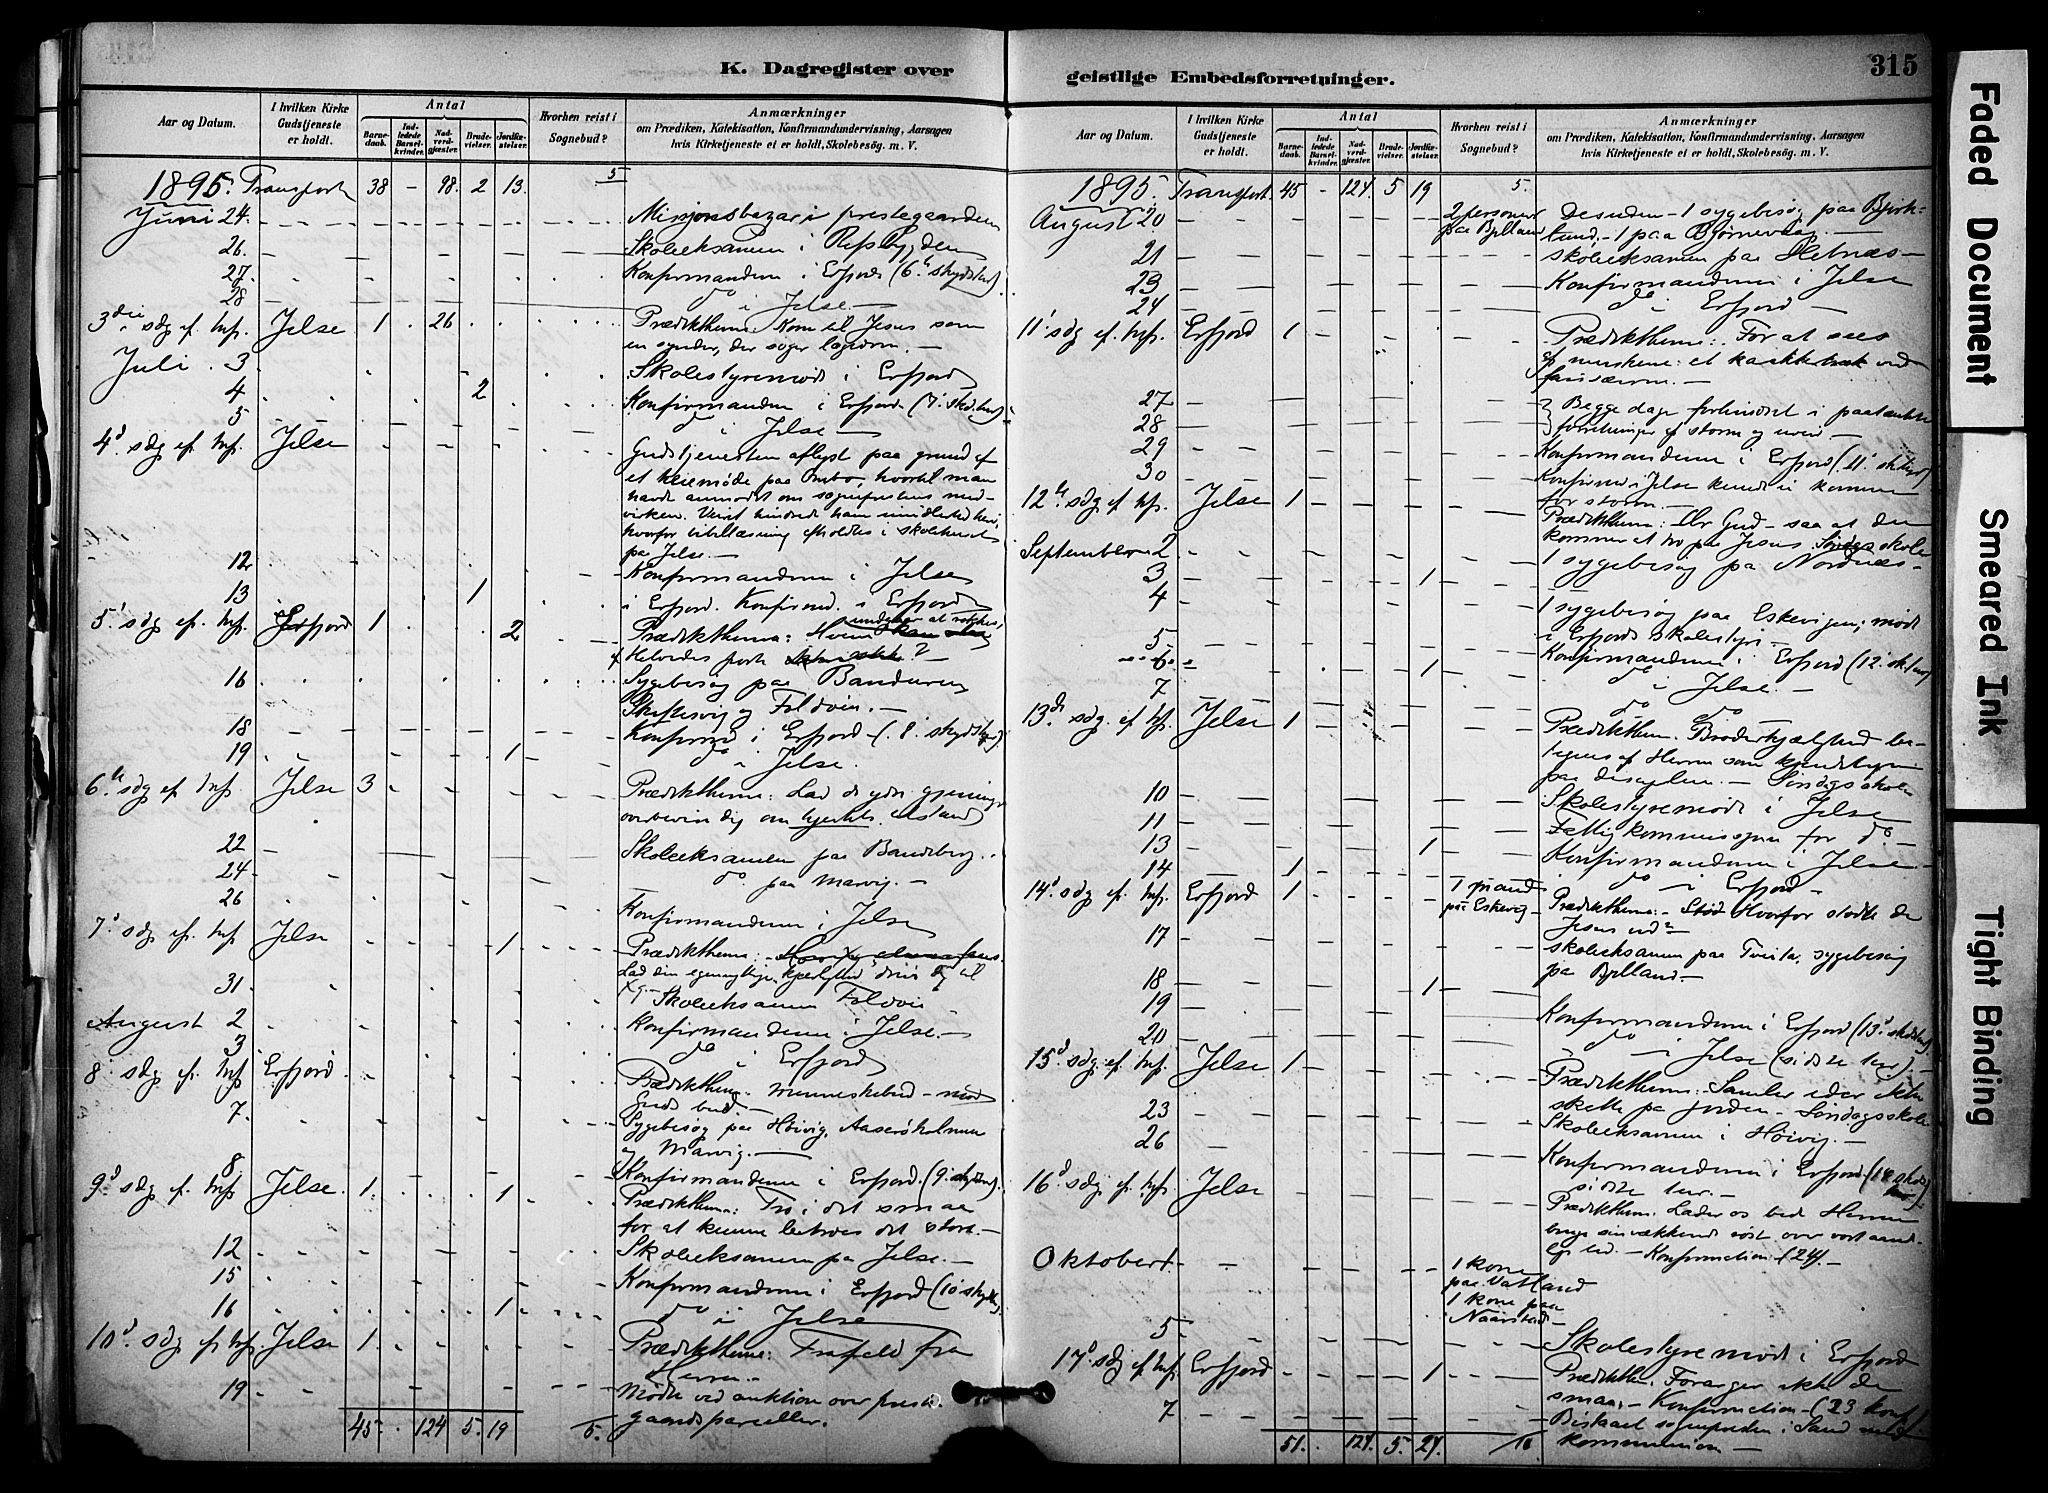 K. Dagregister over
Aar og Datum.
I hvilken Kirke Gudstjeneste er holdt.
Antal
Barnedaab.
Indledede Barselkvinder.
Nadverdgjæster.
Brudevielser.
Jordfæstelser.
Hvorhen reist i Sognebud?
Anmærkninger
om Prædiken, Katekisation, Konfirmandundervisning, Aarsagen
hvis Kirketjeneste ei er holdt, Skolebesøg. m. V.
1895. Transport 38 - 98. 2 13. 5
Juni 24. Missionsbazar i prestegaarden
26. Skoleeksamen i Refsbygden
27. Konfirmanderne i Erfjord (6te skydstur)
28 do i Jelse
3die sdg ef. trf. Jelse 1 26 Prædikthema: Kom til Jesus som
en synder, der søger lægedom. -
Juli 3 Skolestyremøde i Erfjord
4 2 Konfirmanderne i Erfjord. (7.
5 do i Jelse
4d sdg ef trf. Jelse Gudstjenesten aflyst paa grund af
et paa Ombo, hvortil man
havde anmodet om sogneprestens med-
virken. Veiret hindrede ham imidlertid heri,
hvorfor bibellæsning afholdtes i skolehuset
paa Jelse. -
12 Konfirmanderne i Jelse
13 1 i Erfjord. Konfirmd. i Erfjord
5' sdg ef. trf. Erfjord 1 2 Prædikthema: Hvem
Helvedes porte
16 Sygebesøg paa Bandeberg
og Foldøen. -
18 Konfirmd i Erfjord (8.
19 1 do i Jelse.
6te sdg ef trf. Jelse 3 Prædikthema: Lad de ydre gjerninger
overbevise dig om hjertets tilstand
22 Skoleeksamen paa Bandeberg.
24 do. paa Marvig. -
26 Konfirmanderne i Jelse
7d sdg ef. trf Jelse 1 Prædikthema:
Lad din egennyttige kjærlighed drive dig til
31 Skoleeksamen Foldøen
August 2 Konfirmanderne i Jelse. -
3 do i Erfjord
8' sdg ef. trf Erfjord Prædikthema: menneskebud - mod
Guds bud. -
7. Sygebesøg paa Høivig, Aaserøholmen
og Marvig. -
8 Konfirmanderne i Erfjord. (9.
9d sdg ef. trf Jelse. 1. 1 Prædikthema: Tro i det smaa
for at kunne betroes det store. -
12 Skoleeksamen paa Jelse. -
15 Konfirmanderne i Erfjord (10'
16 1 do i Jelse
10d sdg ef trf. Jelse 1 Prædikthema: Frafald fra
Herren. -
19 Mødte ved auktion over preste-
gaardsparceller.
45 124 5. 19 5.
geistlige Embedsforretninger.
315
Aar og Datum.
I hvilken Kirke Gudstjeneste er holdt.
Antal
Barnedaab.
Indledede Barselkvinder.
Nadverdgjæster.
Brudevielser.
Jordfæstelser.
Hvorhen reist i Sognebud?
Anmærkninger
om Prædiken, Katekisation, Konfirmandundervisning, Aarsagen
hvis Kirketjeneste ei er holdt, Skolebesøg m. V.
1895. Transport. 45 - 124. 5 19 5.
August 20 2 personer paa Bjelland Desuden - 1 sygebesøg paa
- 1 paa Bjørnevaag. -
21 skoleeksamen paa Hetnæs -
23 Konfirmanderne i Jelse
24 do i Erfjord -
11' sdg ef. trf. Erfjord 1 Prædikthema: For at sees
af menneskene: et karaktertræk ved
farisæerne. -
27 Begge dage forhindret i paatænkte
28 forretninger af storm og uveir -
29 Konfirmanderne i Erfjord (11'
30 Konfirmd i Jelse kunde ei komme
for storm. -
12te sdg ef trf. Jelse 1 Prædikthema: Gud - saa at du
kommer til tro paa Jesus Søndagsskole
September 2 1 sygebesøg paa Nordnæs -
3 1
4 1 sygebesøg paa Eskevigen; møde
i Erfjords skolestyre -
5 Konfirmanderne i Erfjord (12'
6 1 do i Jelse. -
7 do do
13de sdg. ef trf. Jelse 1 Prædikthema. Broderkjærlighed be-
tegnes af Herren som kjendetegn
paa disciplene. - Søndagsskole
10 Skolestyremøde i Jelse
11 Fattigkommissionen for do. -
13 1 Konfirmanderne i Jelse
14 1 do i Erfjord -
14d sdg ef. trf. Erfjord 1 1 mand paa Eskevig Prædikthema: - Hvorfor stødte de
Jesus ud?
17 skoleeksamen paa Tveita, sygebesøg
paa Bjelland. -
18 1
19 Konfirmanderne i Erfjord (13'
20 do i Jelse (sidste tur) -
15d sdg. ef trf. Jelse 1 Prædikthema: Samler eder ikke
skatte paa jorden - Søndagsskole
23 Skoleeksamen i Høivig. -
26 Konfirmanderne i Erfjord (14
sidste tur. -
16d sdg. ef. trf. Jelse Prædikthema: Lader os bede Herren
bruge sin vækkende røst over vort aand-
lige - Konfirmation - (24). -
Oktober 1. 1 kone paa Vatland
1 kone paa Naarstad -
5 Skolestyremøde i Erfjord
17d sdg ef trf Erfjord 1 Prædikthema: Forarger ikke de
smaa. - Konfirmation - (23 konf.)
7 Bistaaet sognepresten i Sand ved
kommunion -
51. 124. 5. 24. 10
Faded Document
Smeared Ink
Tight Binding